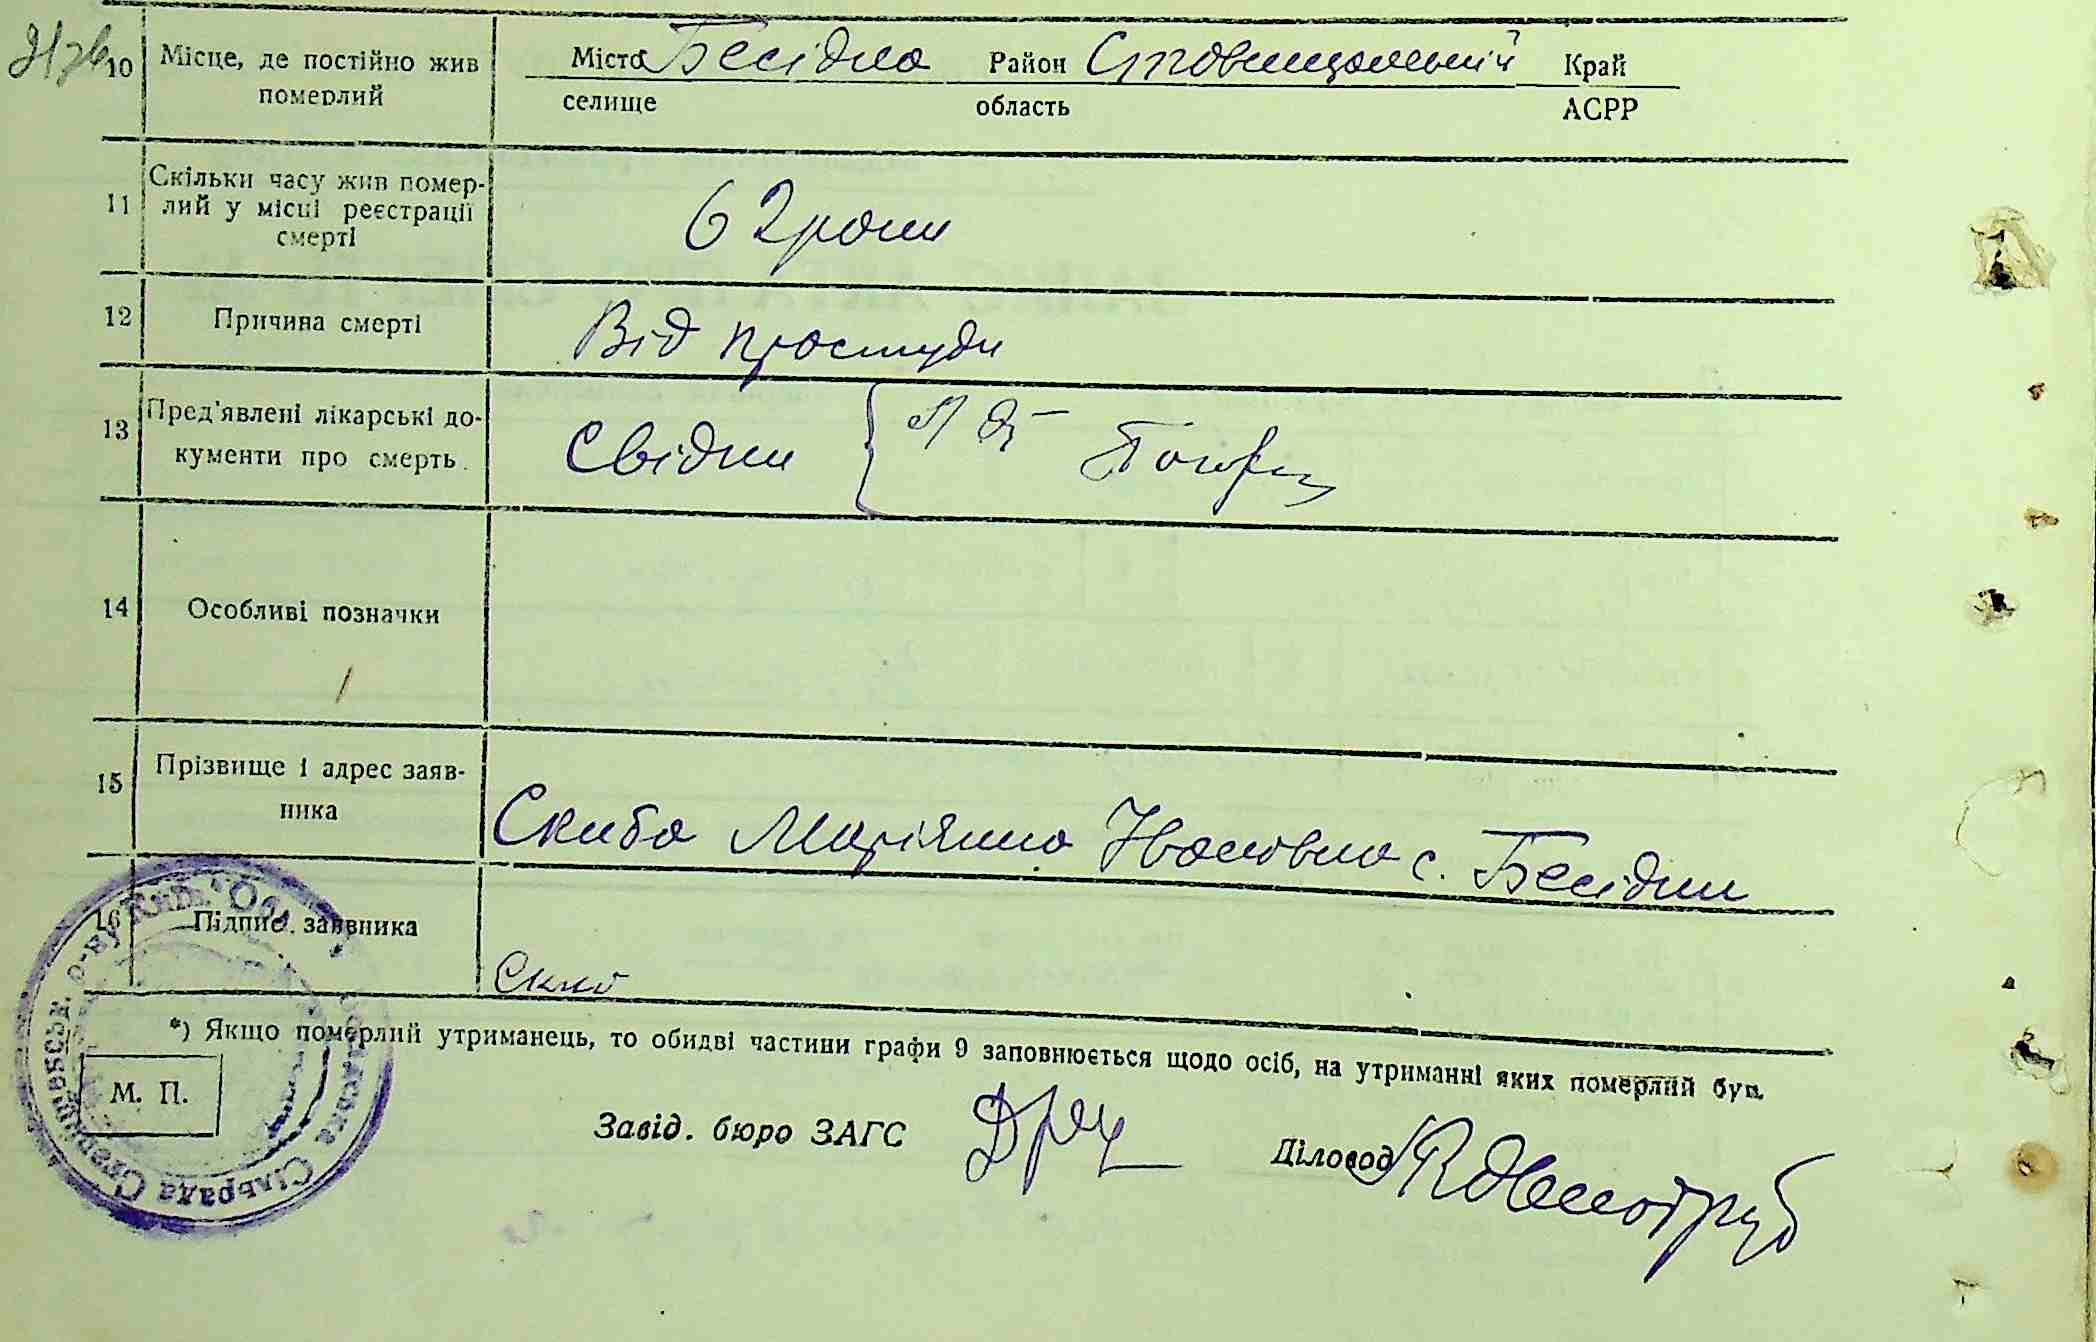 10 Місце, де постійно жив Місто Бесідка Район Ставищанський Край
померлий селище область АСРР
11 Скільки часу жив помер-
лий у місці реєстрації
смерті 62 роки
12 Причина смерті Від простуди
13 Пред'явлені лікарські до-
кументи про смерть. Свідки
14 Особливі позначки
15 Прізвище і адрес заяв-
ника Скиба Маріянна Івановна с. Бесідки
16 Підпис заявника Скиб
*) Якщо померлий утриманець, то обидві частини графи 9 заповнюється щодо осіб, на утриманні яких померлий був.
М. П.
Завід. бюро ЗАГС Діловод
Сільрада